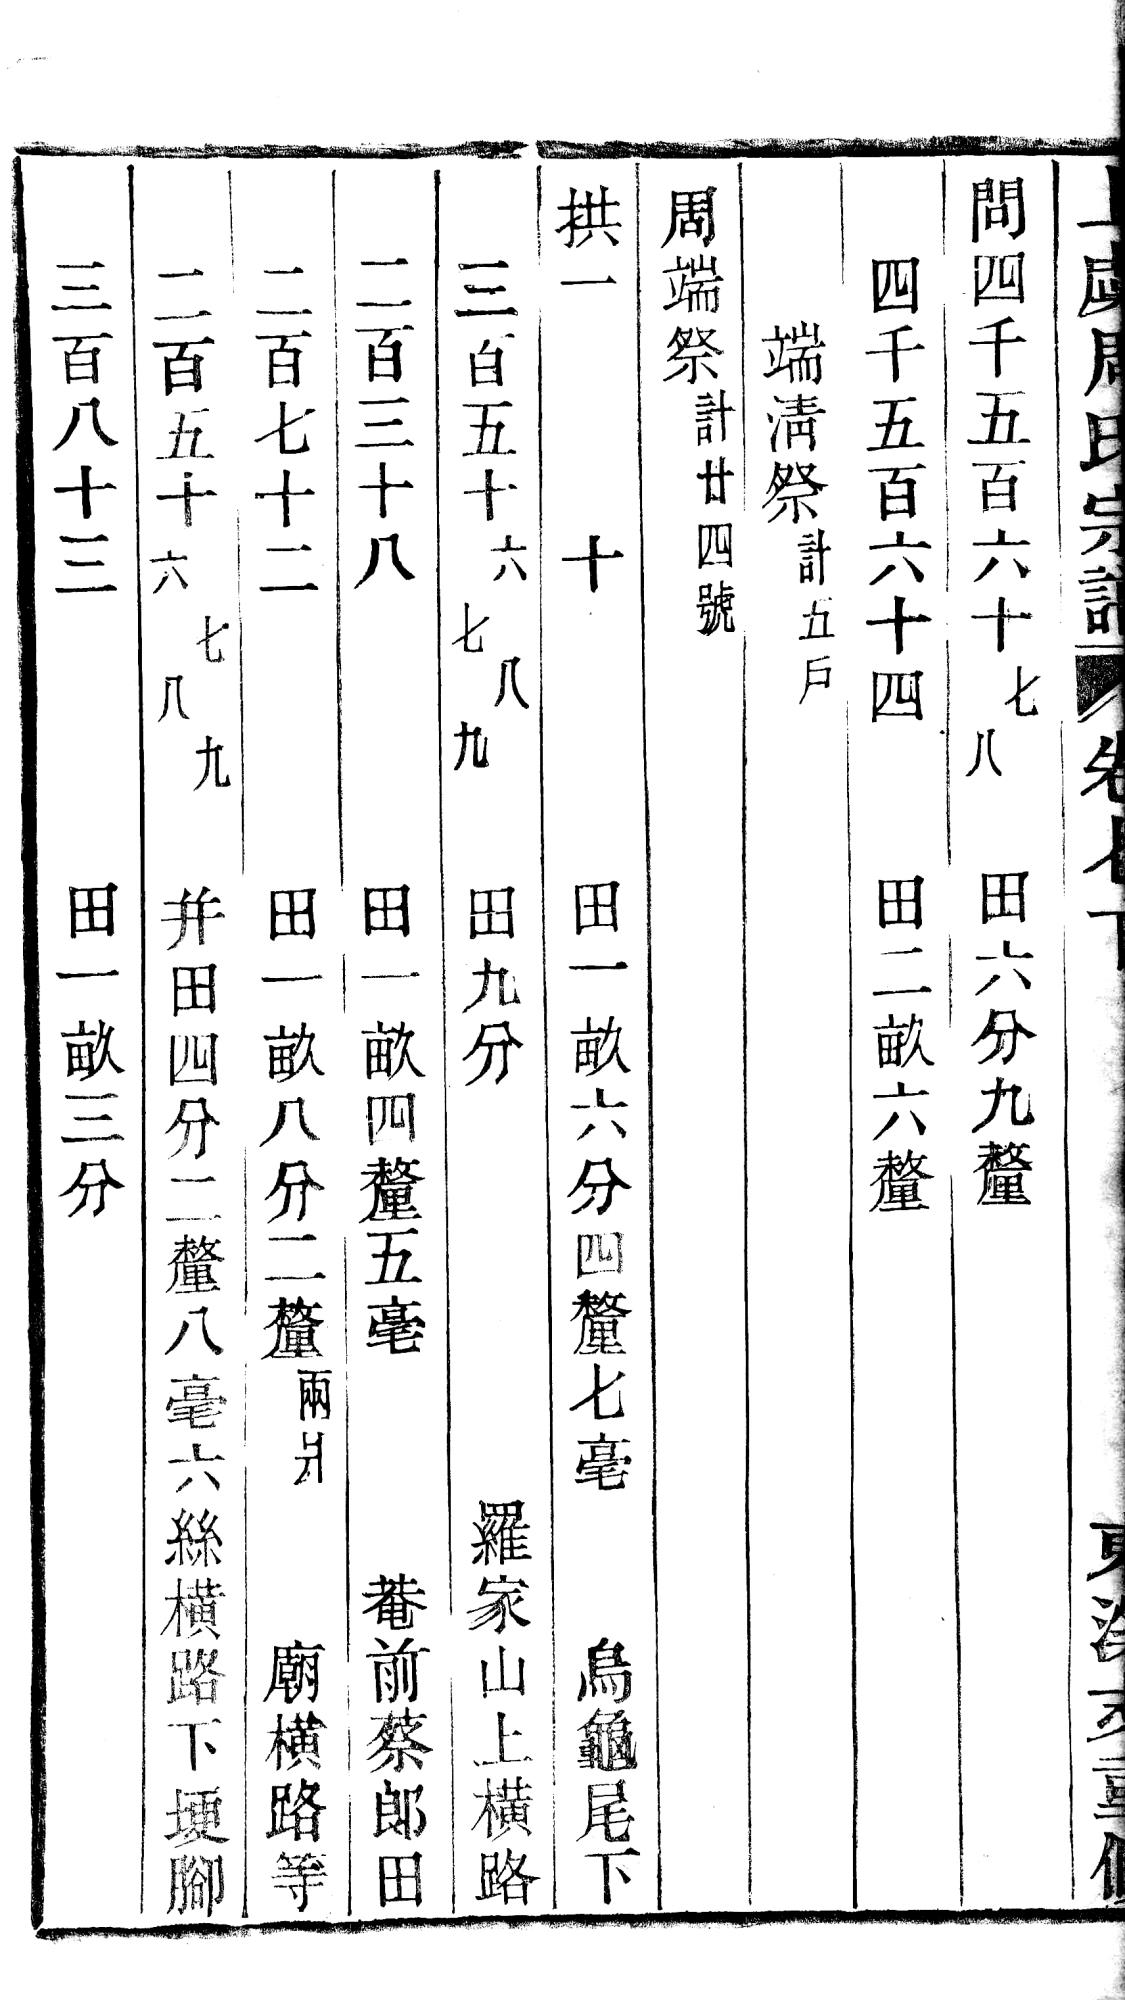 周氏宗譜 卷七下
問四千五百六十七八 田六分九釐
四千五百六十四 田二畝六釐
端淸祭計五戶
周端祭計廿四號
拱一 十 田一畝六分四釐七毫 烏龜尾下
三百五十六七八九 田九分 羅家山上橫路
二百三十八 田一畝四釐五毫 菴前蔡郎田
二百七十二 田一畝八分二釐兩爿 廟橫路等
二百五十六七八九 并田四分二釐八毫六絲橫路下堘腳
三百八十三 田一畝三分